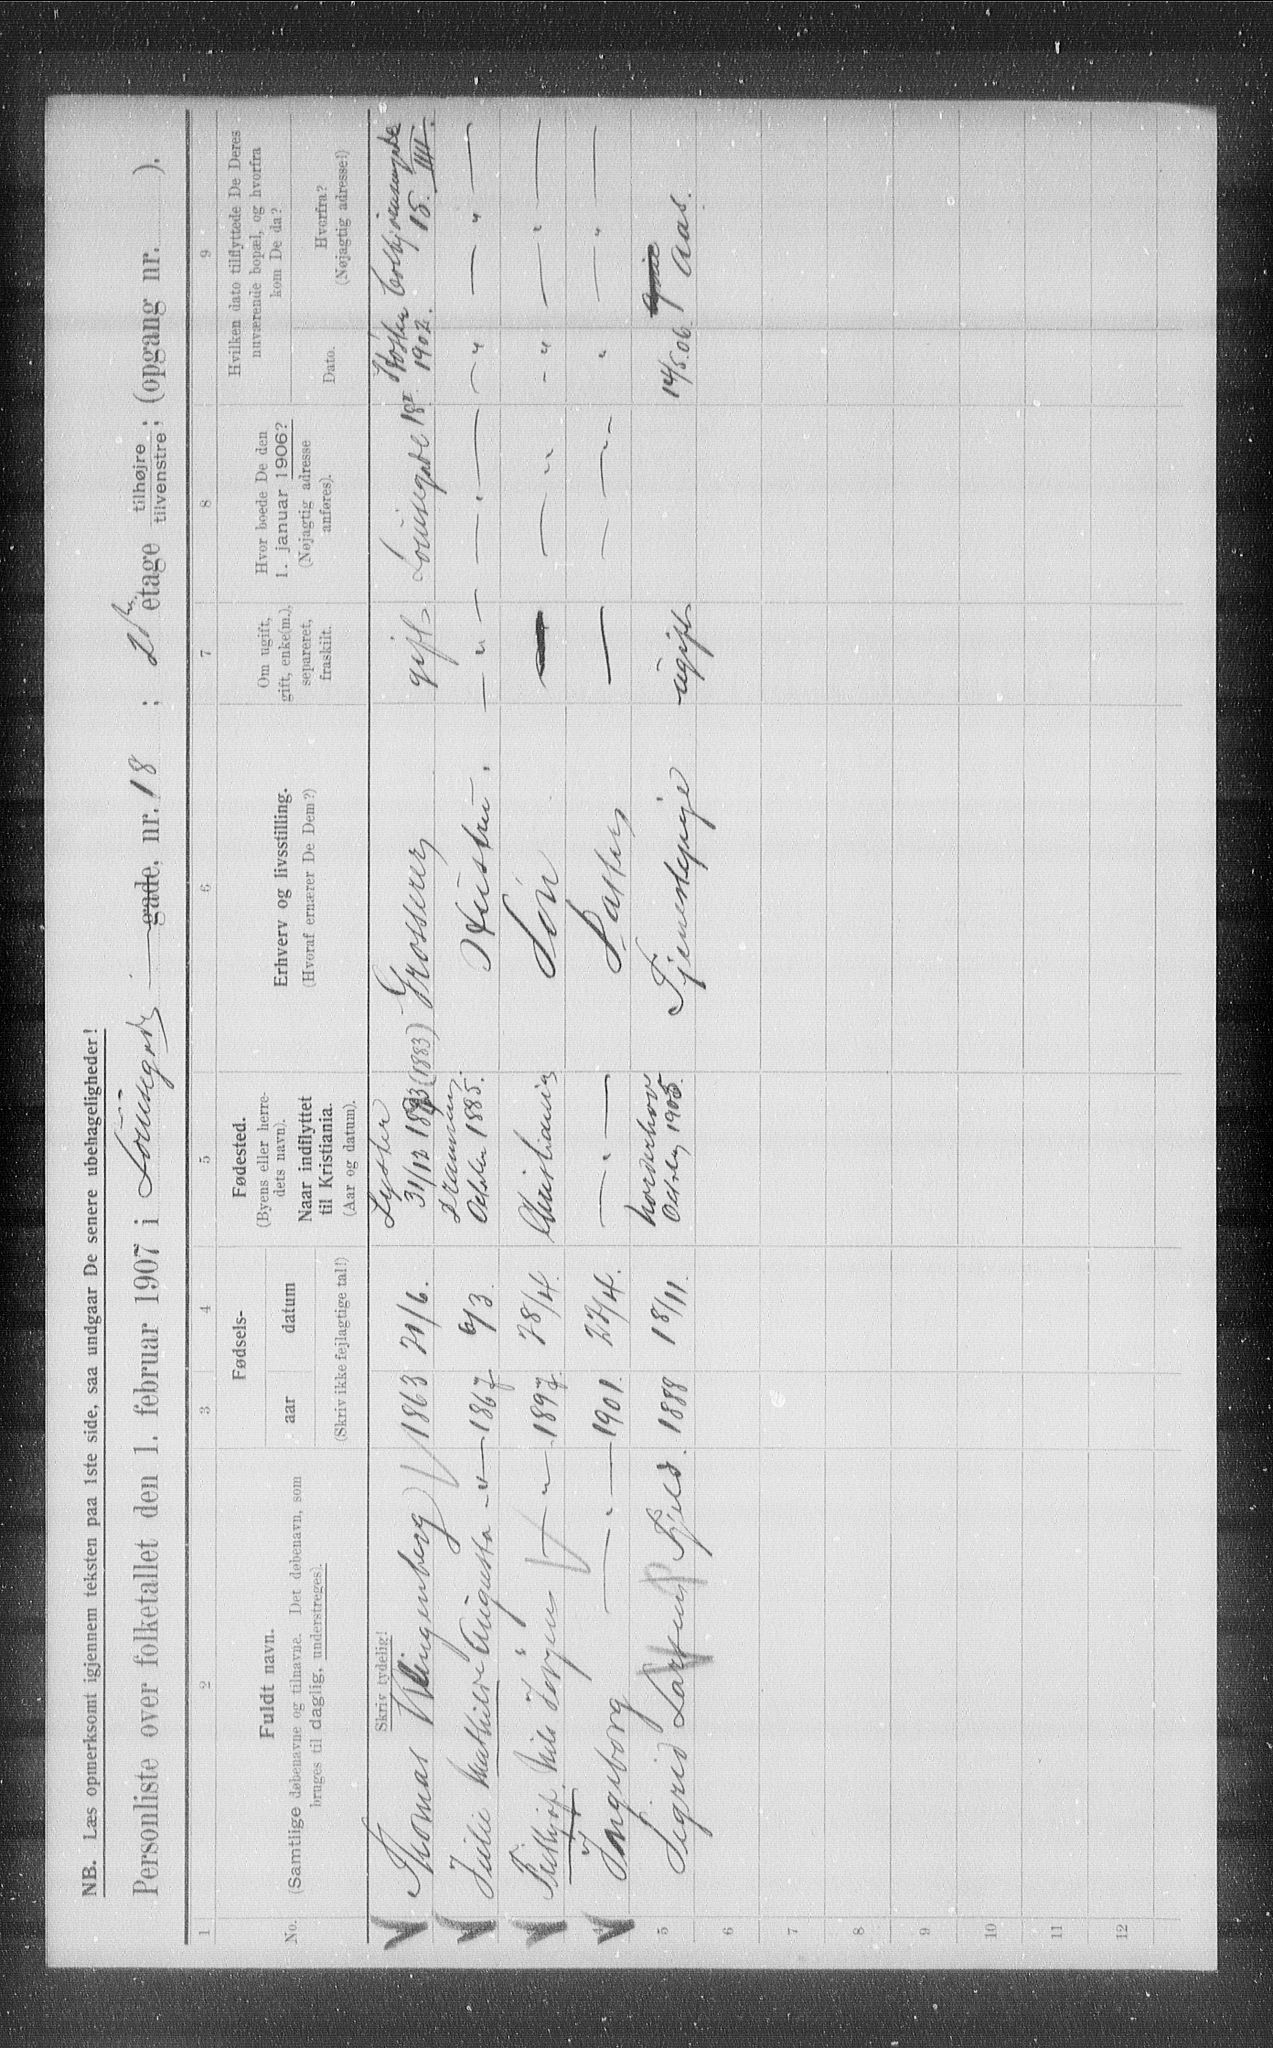 NB. Læs opmerksomt igjennem teksten paa 1ste side, saa undgaar De senere ubehageligheder!
Personliste over folketallet den 1. februar 1907 i Louisegade gade, nr. 18 ; 2den etage tilhøjre tilvenstre; (opgang nr. ).
1 2 3 4 5 6 7 8 9
No.
Fuldt navn.
(Samtlige døbenavne og tilnavne. Det døbenavn, som
bruges til daglig, understreges).
Fødsels-
aar datum
(Skriv ikke fejlagtige tal!)
Fødested.
(Byens eller herre-
dets navn).
Naar indflyttet
til Kristiania.
(Aar og datum).
Erhverv og livsstilling.
(Hvoraf ernærer De Dem?)
Om ugift,
gift, enke(m.),
separeret,
fraskilt.
Hvor boede De den
1. januar 1906?
(Nøjagtig adresse
anføres).
Hvilken dato tilflyttede De Deres
nuværende bopæl, og hvorfra
kom De da?
Dato.
Hvorfra?
(Nøjagtig adresse!)
Skriv tydelig!
Thomas Klingenberg 1863 21/6. Lyster 31/12 1883 (1883) Grosserer gift Louisegade 18 Høsten 1902. Colbjørnsensgade 15. III.
Julie Mathilde Augusta — " — 1867 6/3. Drammen October 1885. Hustru. — " — — " — — " — — " —
Fridtjof Nils Jørgen — " — 1897. 28/4. Christiania Søn — " — - " — " —
Ingeborg — " — 1901. 27/4. — " — Datter — — " — " — " —
5 Sigrid Larsen Fjeld. 1888 18/11. Norderhov Octbr 1905. Tjenestepige ugift 14/5.06. Aas.
6
7
8
9
10
11
12